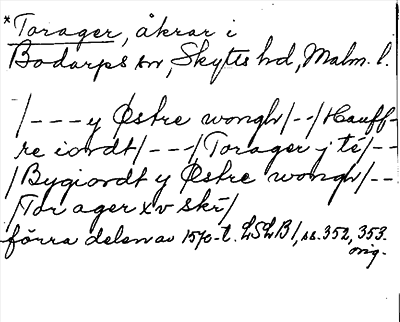 *Torager, åkrar i
Bodarps sn, Skytts hd, Malm. l.
/---y Østre wongh/--/Hauff-
re iordt/---/Torager j té/--
/Bygiordt y Østre wongh/--
/Tor ager xv skr/
förra delen av 1570-t. LSLB1, ss. 352, 353.
orig.